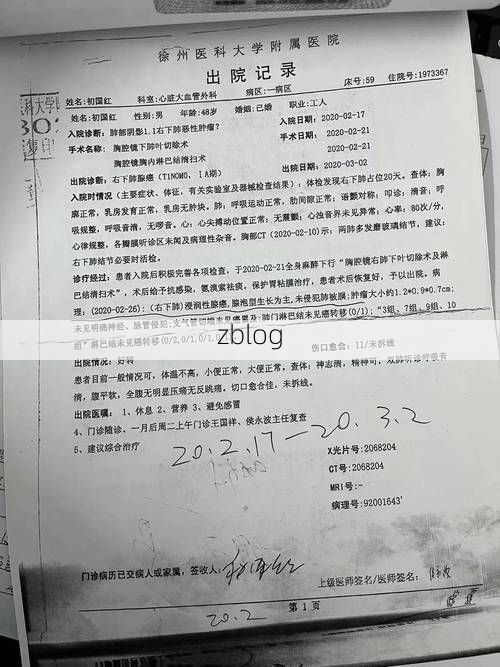 徐州医科大学附属医院
出院记录
姓名:初国红 科室:心脏大血管外科 病区:一病区 床号:59 住院号:1973367
姓名:初国红 性别:男 年龄:48岁 婚姻:已婚 职业:工人
入院诊断:肺部阴影1.1右下肺恶性肿瘤? 入院日期:2020-02-17
手术名称:胸腔镜下肺叶切除术 手术日期:2020-02-21
胸腔镜胸内淋巴结清扫术 2020-02-21
出院诊断:右下肺腺癌(T1N0M0,ⅠA期) 出院日期:2020-03-02
入院时情况(主要症状、体征,有关实验室及器械检查结果):体检发现右下肺占位20天。查体:胸
廓正常,乳房发育正常,乳房无肿块。肺:呼吸运动正常,肋间隙正常;语颤对称;叩诊:清音;呼
吸规整,呼吸音清,无啰音。心:心尖搏动位置正常;无震颤;心浊音界未见异常;心率:80次/分,
心律规整,各瓣膜听诊区未闻及病理性杂音。胸部CT(2020-02-10)示:两肺多发磨玻璃结节,建议:
右下肺结节必要时活检。
诊疗经过:患者入院后积极完善各项检查,于2020-02-21全身麻醉下行"胸腔镜右肺下叶切除术及淋
巴结清扫术",术后给予抗感染,氨溴索祛痰,保护胃粘膜治疗,患者术后恢复好,予以出院。病
理:(2020-02-26):(右下肺)浸润性腺癌,腺泡型生长为主,未侵犯肺被膜;肿瘤大小约1.2*0.9*0.7cm;
未见明确神经、脉管侵犯;支气管切端未见癌累及;肺门淋巴结未见癌转移(0/1);"3组、7组、9组、10
组"淋巴结未见癌转移(0/2,0/1,0/1,
zblog
出院情况:好转 伤口愈合:II/未拆线
患者目前一般情况可,体温不高,小便正常,大便正常。查体:神志清,精神可,双肺听诊呼吸音
清,腹平软,全腹无明显压痛无反跳痛。切口愈合佳,未拆线。
出院医嘱:1、休息 2、营养 3、避免感冒
4、门诊随诊、一月后周二上午门诊王国祥、侯永波主任复查
5、建议综合治疗
20.2.17—20.3.2
X光片号:2068204
CT号:2068204
MRI号:-
病理号:92001643'
门诊病历已交病人或家属,签收人:
上级医师签名/医师签名:
第1页
20.2